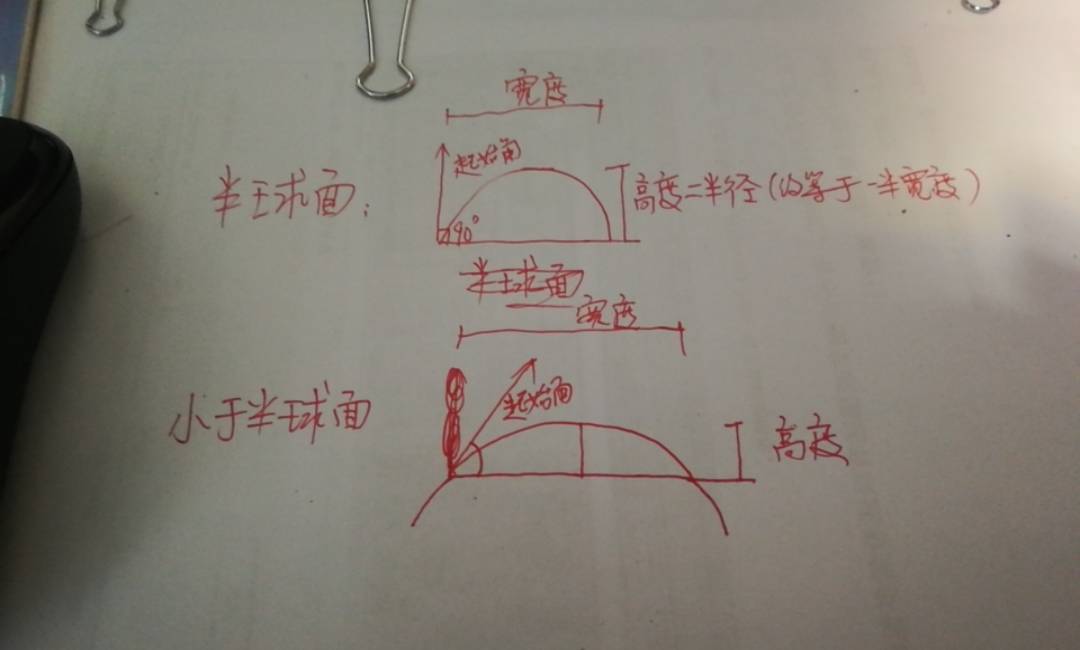 宽度
起始角
半球面：
90°
高度=半径(约等于一半宽度)
半球面
宽度
起始面
小于半球面
高度